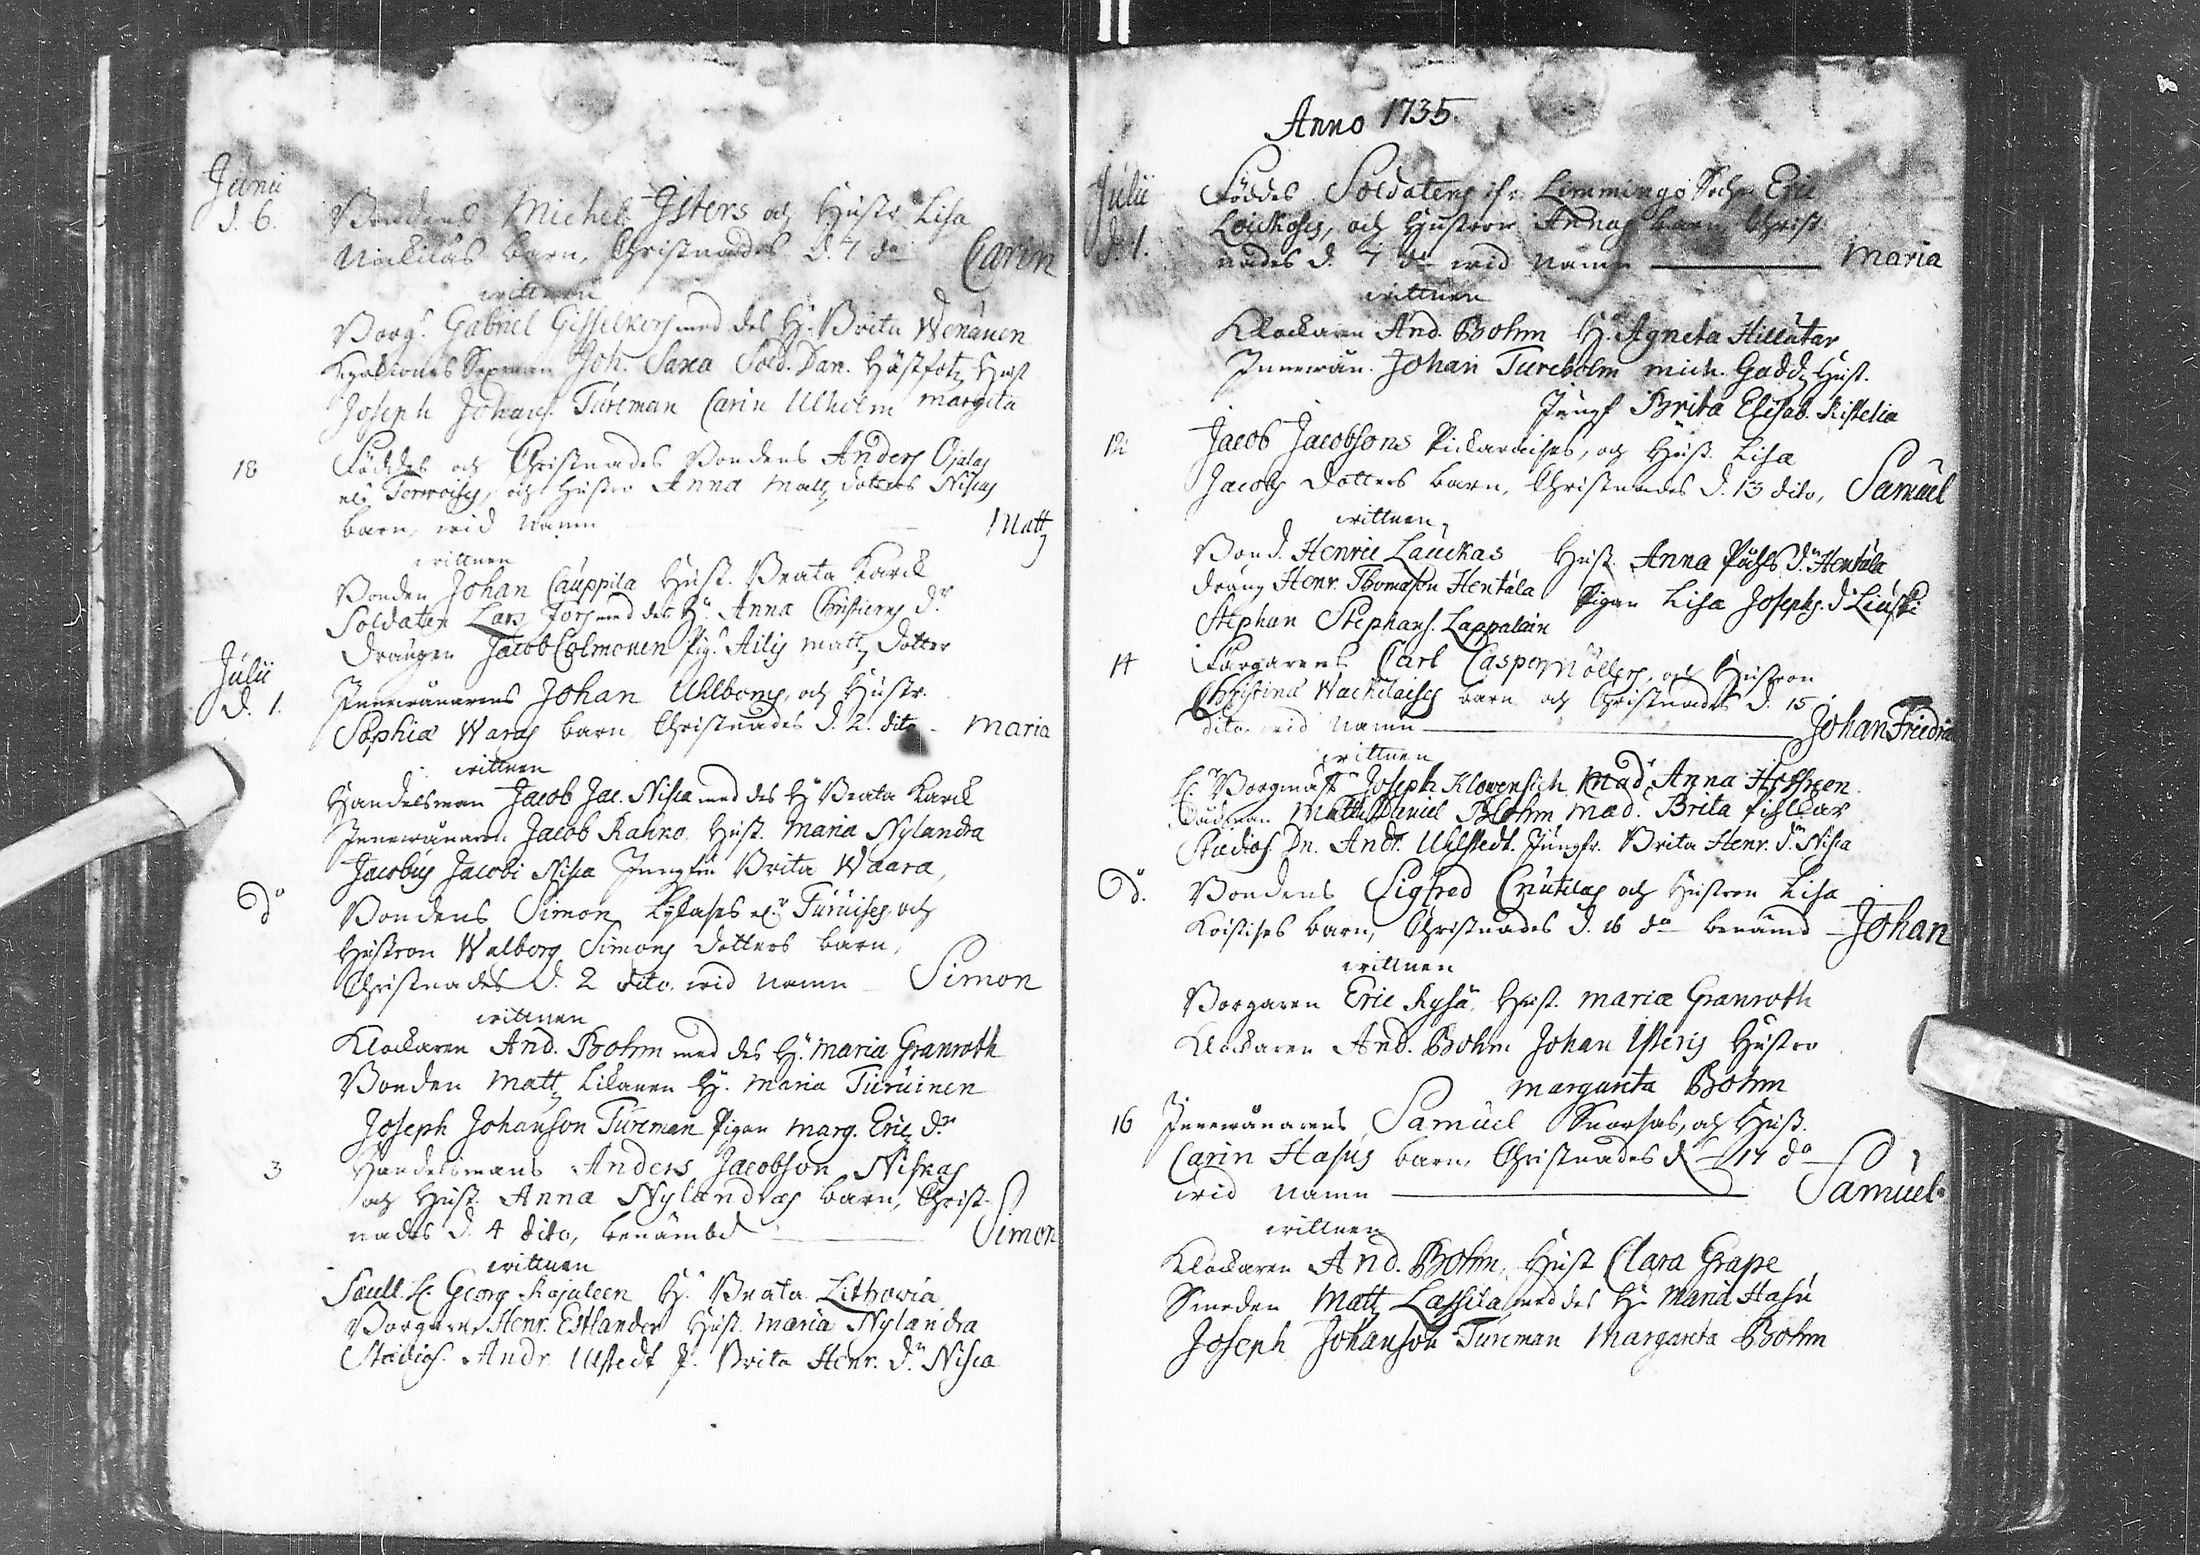 Junii
d. 6. Bondens Michel Isters och Hustr. Lisa
barn, Christnades d. 7 do Carin
wittnen
Borg. Gabriel Gisselkors med des H. Brita Wenäuen
Joh. Saxa Sold. Dan. Hästfot, Hust
Joseph Johans. Tureman Carin Ulholm Margeta
18 Föddes och Christnades Bondens Anders Ojalas
och Hustro Anna Matts dotters Niscas
barn, wid namn Matts
wittnen
Bonden Johan Cauppila Hust. Beata Karck
Soldaten Lars Fors med des H. Anna Christiers dr
Drängen Jacob Colmonen Pig. Ailis Matts dotter
Julii
d. 1. Innewånarens Johan Uhlboms, och Hustr.
Sophia Waras barn Christnades d. 2. dito Maria
wittnen
Handelsman Jacob Jac. Nisca med des H. Beata Karck
Innewånaren Jacob Rahno, Hust. Maria Nylandra
Jacobus Jacobi Nisca Jungfru Brita Waara,
do Bondens Simon Kylases Turuises och
Hustron Walborg Simons dotters barn,
Christnades d. 2 dito, wid namn Simon
wittnen
Klockaren And. Bohm med des H. Maria Granroth
Bonden Matts Likanen H. Maria Turuinen
Joseph Johanson Tureman Pigan Marg. Erics dr
3 Handelsmans Anders Jacobson Niskas
och Hust. Anna Nylandras barn, Christ-
nades d. 4 dito, benämbd Simon
wittnen
Georg Rajaleen H. Beata Lithovia
Borgaren Henr. Estlander Hust. Maria Nylandra
Studios. Andr. Ulstedt J. Brita Henr. dr Nisca
Anno 1735.
Julii Föddes Soldatens ifr. Limmingo Sochn Eric
Louckoses, och Hustron Annas barn, Christ-
d. 1. nades d. 7 do wid namn Maria
wittnen
Klockaren And. Bohm H. Agneta Hillutar
Innewån. Johan Tureholm Mich. Gadds Hust.
Jungf Brita Elisab. Ristelia
12 Jacob Jacobsons Pickaraises, och Hust. Lisa
Jacobs dotters barn, Christnades d. 13 dito, Samuel
wittnen
Bond. Henric Lauckas Hust. Anna Påhls dr Hentula
dräng Henr. Thomason Hentula Pigan Lisa Josephs. dr
Stephan Stephans. Lappalain
14 Färgarens Carl Casper Möllers, och Hustron
Christina Wachilaises barn och Christnades d. 15
dito, wid namn Johan Friedric
wittnen
Borgmäst. Joseph Mad. Anna
Rådman Matts Daniel Blohm Mad. Brita
Studios. Dn. Andr. Uhlstedt. Jungfr. Brita Henr. dr Nisca
do. Bondens Sigfred Cnutilas och Hustron Lisa
Koistises barn, Christnades d. 16 do benämd Johan
wittnen
Borgaren Eric Kysä, Hust. Maria Granroth
Klockaren And. Bohm Johan Isteris Hustro
Margareta Bohm
16 Innewånarens Samuel Snorsas, och Hust.
Carin Hasus barn, Christnades d. 17 do
wid namn Samuel
wittnen
Klockaren And. Bohm, Hust Clara Grape
Smeden Matts Lassila med des H. Maria Hasu
Joseph Johanson Tureman Margareta Bohm